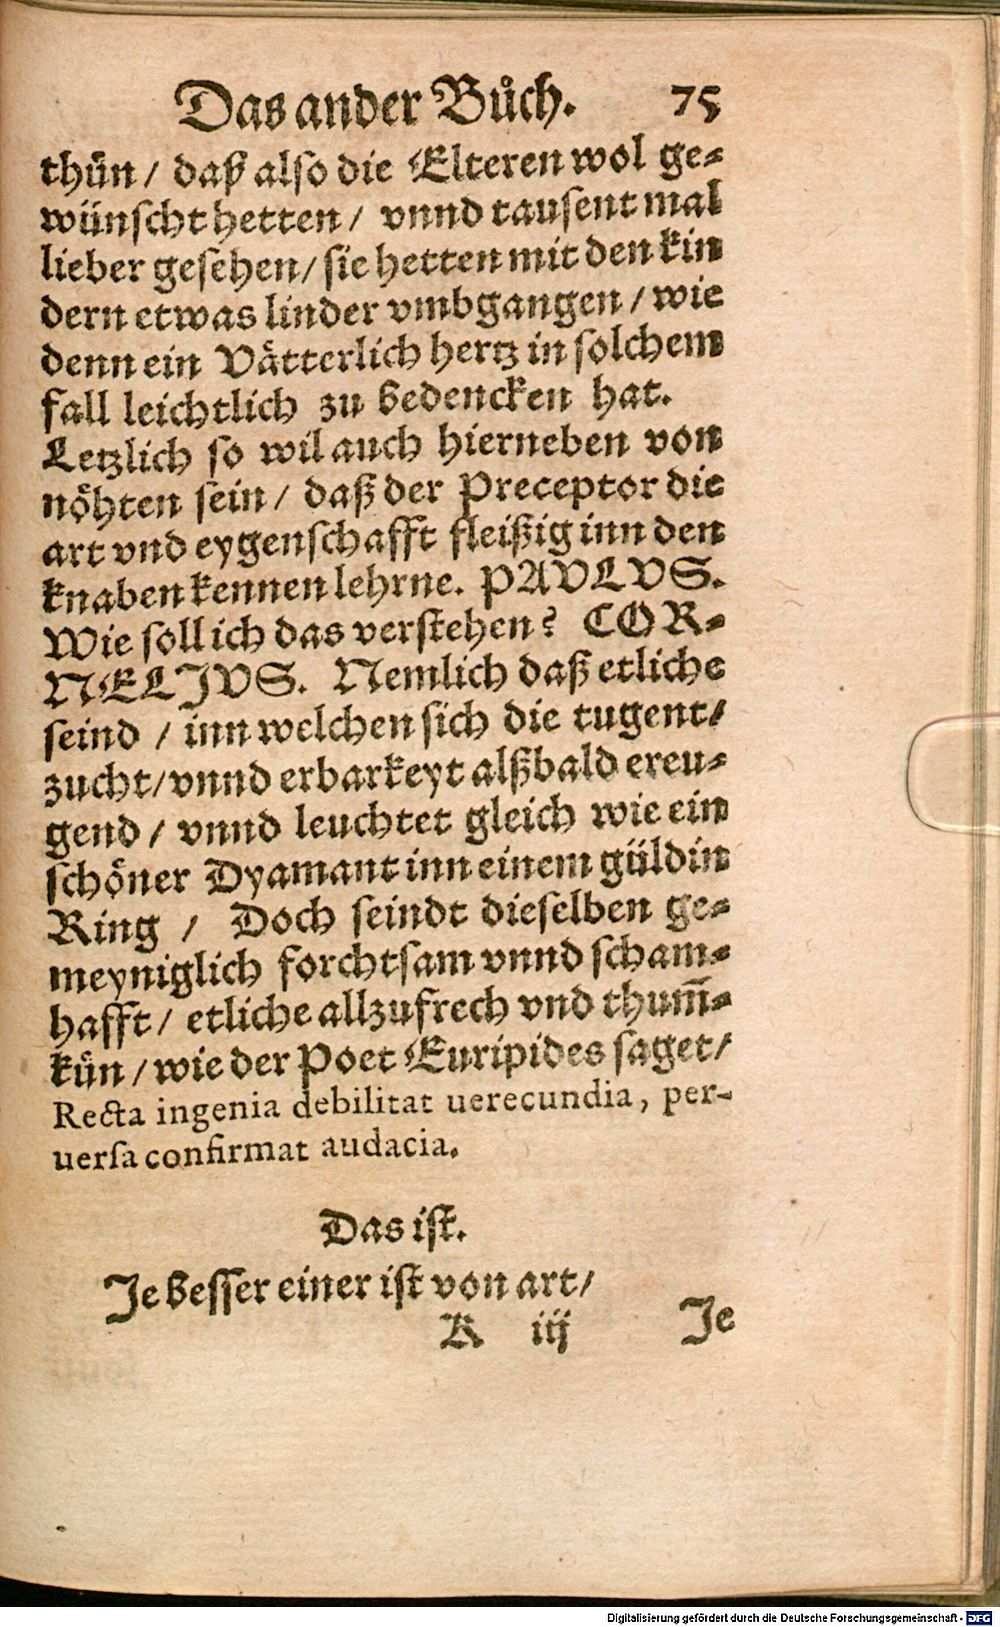 Das ander Bůch. 75
thůn / daß also die Elteren wol ge-
wünscht hetten / vnnd tausent mal
lieber gesehen / sie hetten mit den kin
dern etwas linder vmbgangen / wie
denn ein Vätterlich hertz in solchem
fall leichtlich zu bedencken hat.
Letzlich so wil auch hierneben von
nöhten sein / daß der Preceptor die
art vnd eygenschafft fleißig inn den
knaben kennen lehrne. PAVLVS.
Wie soll ich das verstehen? COR-
NELJVS. Nemlich daß etliche
seind / inn welchen sich die tugent /
zucht / vnnd erbarkeyt alßbald ereu-
gend / vnnd leuchtet gleich wie ein
schöner Dyamant inn einem güldin
Ring / Doch seindt dieselben ge-
meyniglich forchtsam vnnd scham-
hafft / etliche allzufrech vnd thum̄-
kün / wie der Poet Euripides saget /
Recta ingenia debilitat uerecundia, per-
uersa confirmat audacia.
Das ist.
Je besser einer ist von art /
K iij Je
Digitalisierung gefördert durch die Deutsche Forschungsgemeinschaft - DFG